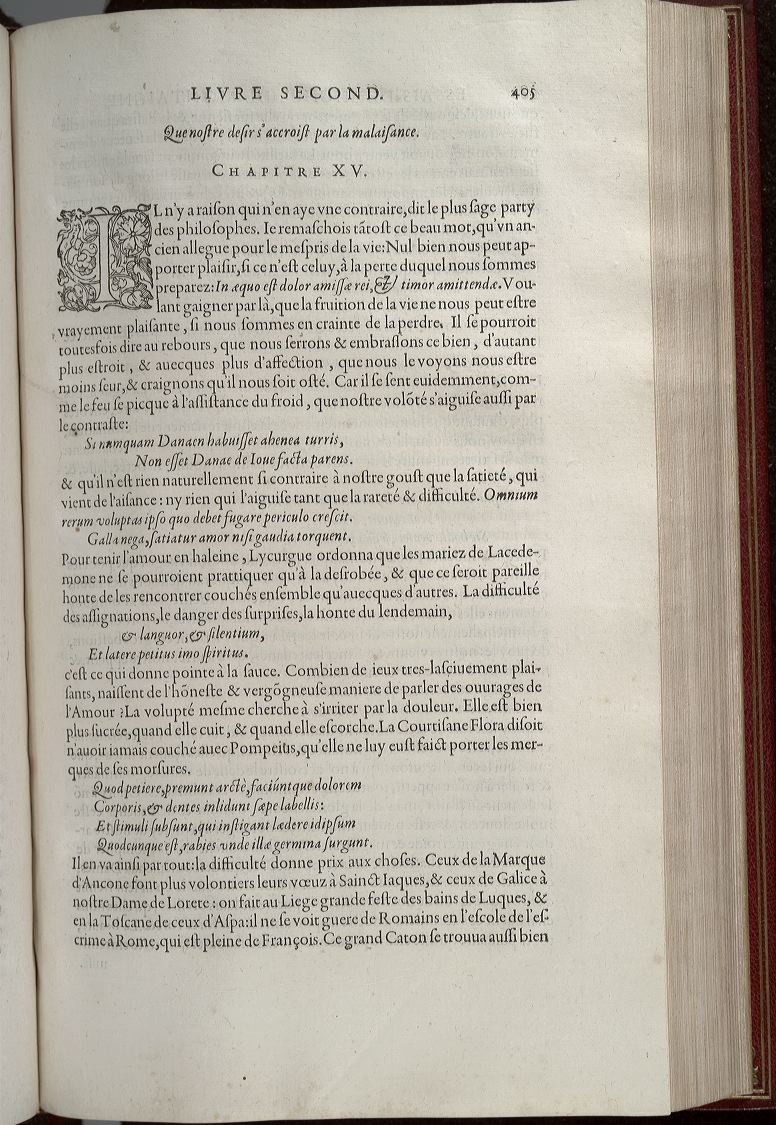 LIVRE SECOND. 405
Que nostre desir s'accroist par la malaisance.
CHAPITRE XV.
IL n'y a raison qui n'en aye vne contraire, dit le plus sage party
des philosophes. Ie remaschois tãtost ce beau mot, qu'vn an-
cien allegue pour le mespris de la vie: Nul bien nous peut ap-
porter plaisir, si ce n'est celuy, à la perte duquel nous sommes
preparez: In æquo est dolor amissæ rei, & timor amittendæ. Vou-
lant gaigner par là, que la fruition de la vie ne nous peut estre
vrayement plaisante, si nous sommes en crainte de la perdre. Il se pourroit
toutesfois dire au rebours, que nous serrons & embrassons ce bien, d'autant
plus estroit, & auecques plus d'affection, que nous le voyons nous estre
moins seur, & craignons qu'il nous soit osté. Car il se sent euidemment, com-
me le feu se picque à l'assistance du froid, que nostre volõté s'aiguise aussi par
le contraste:
Si numquam Danaen habuisset ahenea turris,
Non esset Danae de Ioue facta parens.
& qu'il n'est rien naturellement si contraire à nostre goust que la satieté, qui
vient de l'aisance: ny rien qui l'aiguise tant que la rareté & difficulté. Omnium
rerum voluptas ipso quo debet fugare periculo crescit.
Galla nega, satiatur amor nisi gaudia torquent.
Pour tenir l'amour en haleine, Lycurgue ordonna que les mariez de Lacede-
mone ne se pourroient prattiquer qu'à la desrobée, & que ce seroit pareille
honte de les rencontrer couchés ensemble qu'auecques d'autres. La difficulté
des assignations, le danger des surprises, la honte du lendemain,
& languor, & silentium,
Et latere petitus imo spiritus.
c'est ce qui donne pointe à la sauce. Combien de ieux tres-lasciuement plai-
sants, naissent de l'hõneste & vergõgneuse maniere de parler des ouurages de
l'Amour? La volupté mesme cherche à s'irriter par la douleur. Elle est bien
plus sucrée, quand elle cuit, & quand elle escorche. La Courtisane Flora disoit
n'auoir iamais couché auec Pompeius, qu'elle ne luy eust faict porter les mer-
ques de ses morsures.
Quod petiere, premunt arctè, faciúntque dolorem
Corporis, & dentes inlidunt sæpe labellis:
Et stimuli subsunt, qui instigant lædere idipsum
Quodcunque est, rabies vnde illæ germina surgunt.
Il en va ainsi par tout: la difficulté donne prix aux choses. Ceux de la Marque
d'Ancone font plus volontiers leurs vœuz à Sainct Iaques, & ceux de Galice à
nostre Dame de Lorete: on fait au Liege grande feste des bains de Luques, &
en la Toscane de ceux d'Aspa: il ne se voit guere de Romains en l'escole de l'es-
crime à Rome, qui est pleine de François. Ce grand Caton se trouua aussi bien